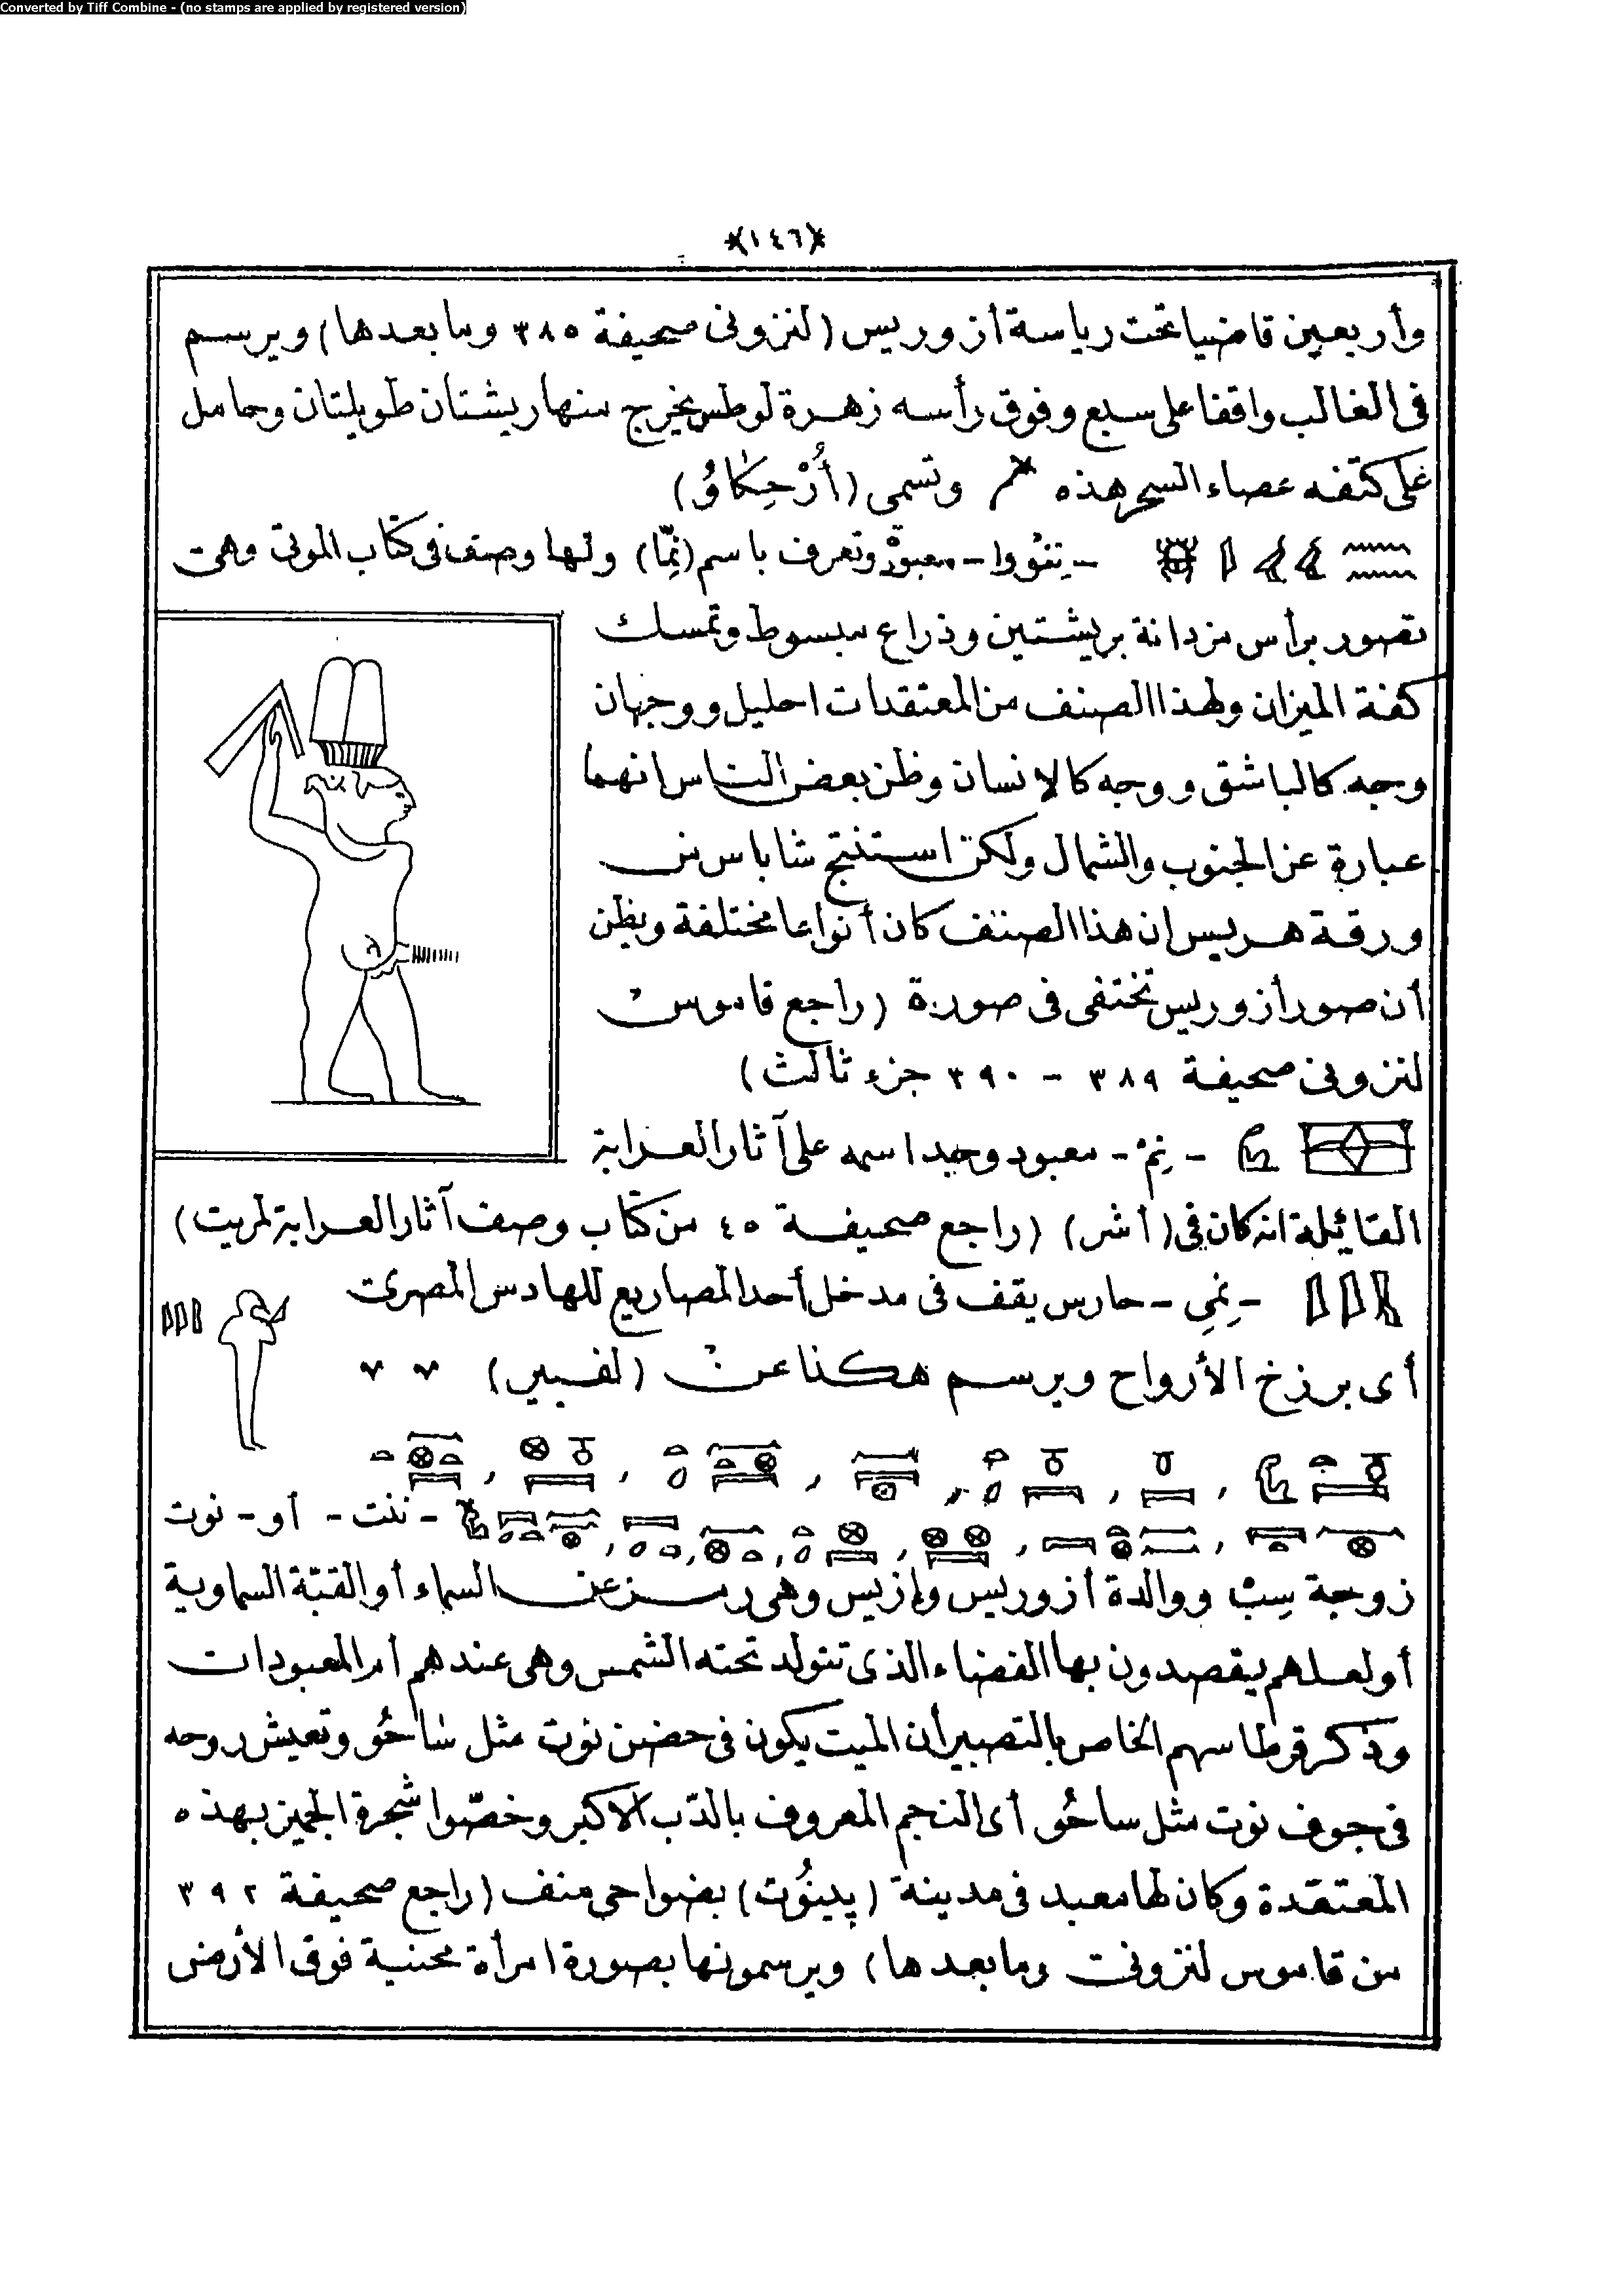 Converted by Tiff Combine - (no stamps are applied by registered version)
﴿١٤٦﴾
وأربعين قاضيا تحت رياسة أزوريس (لنزونى صحيفة ٣٨٥ وما بعدها) ويرسم
فى الغالب واقفا على سبع وفوق رأسه زهرة لوطس يخرج منها ريشتان طويلتان وحامل
على كتفه عصاء السحر هذه وتسمى (أُرْحِكَاوُ)
- معبودة وتعرف باسم (نِمّا) ولها وصف فى كتاب الموتى وهى
تصور برأس مزدانة بريشتين وذراع مبسوط وتمسك
كفة الميزان ولهذا الصنف من المعتقدات احليل ووجهان
وجه كالباشق ووجه كالانسان وظن بعض الناس انهما
عبارة عن الجنوب والشمال ولكن استنتج شاباس من
ورقة هريس ان هذا الصنف كان أنواعا مختلفة ويظن
أن صور أزوريس تختفى فى صورة (راجع قاموس
لنزونى صحيفة ٣٨٩ - ٣٩٠ جزء ثالث)
- نِمْ - معبود وجد اسمه على آثار العرابة
القائلة انه كان فى (أشر) (راجع صحيفة ٤٥ من كتاب وصف آثار العرابة لمريت)
- نِمِى - حارس يقف فى مدخل أحد المصاريع للهادس المصرى
أى برزخ الأرواح ويرسم هكذا عن (لفبير)
- ننت - أو - نوت
زوجة سِبْ ووالدة أزوريس وإزيس وهى رمز عن السماء أو القبّة السماوية
أو لعلهم يقصدون بها الفضاء الذى تتولد تحته الشمس وهى عندهم أم المعبودات
وذكر قرطاسهم الخاص بالتصبير أن الميت يكون فى حضن نوت مثل ساحُو وتعيش روحه
فى جوف نوت مثل ساحُو أى النجم المعروف بالدّب الاكبر وخصّوا شجرة الجميز بهذه
المعتقدة وكان لها معبد فى مدينة (پِينُوت) بضواحى منف (راجع صحيفة ٣٩٢
من قاموس لنزونى وما بعدها) ويرسمونها بصورة امرأة محنية فوق الأرض